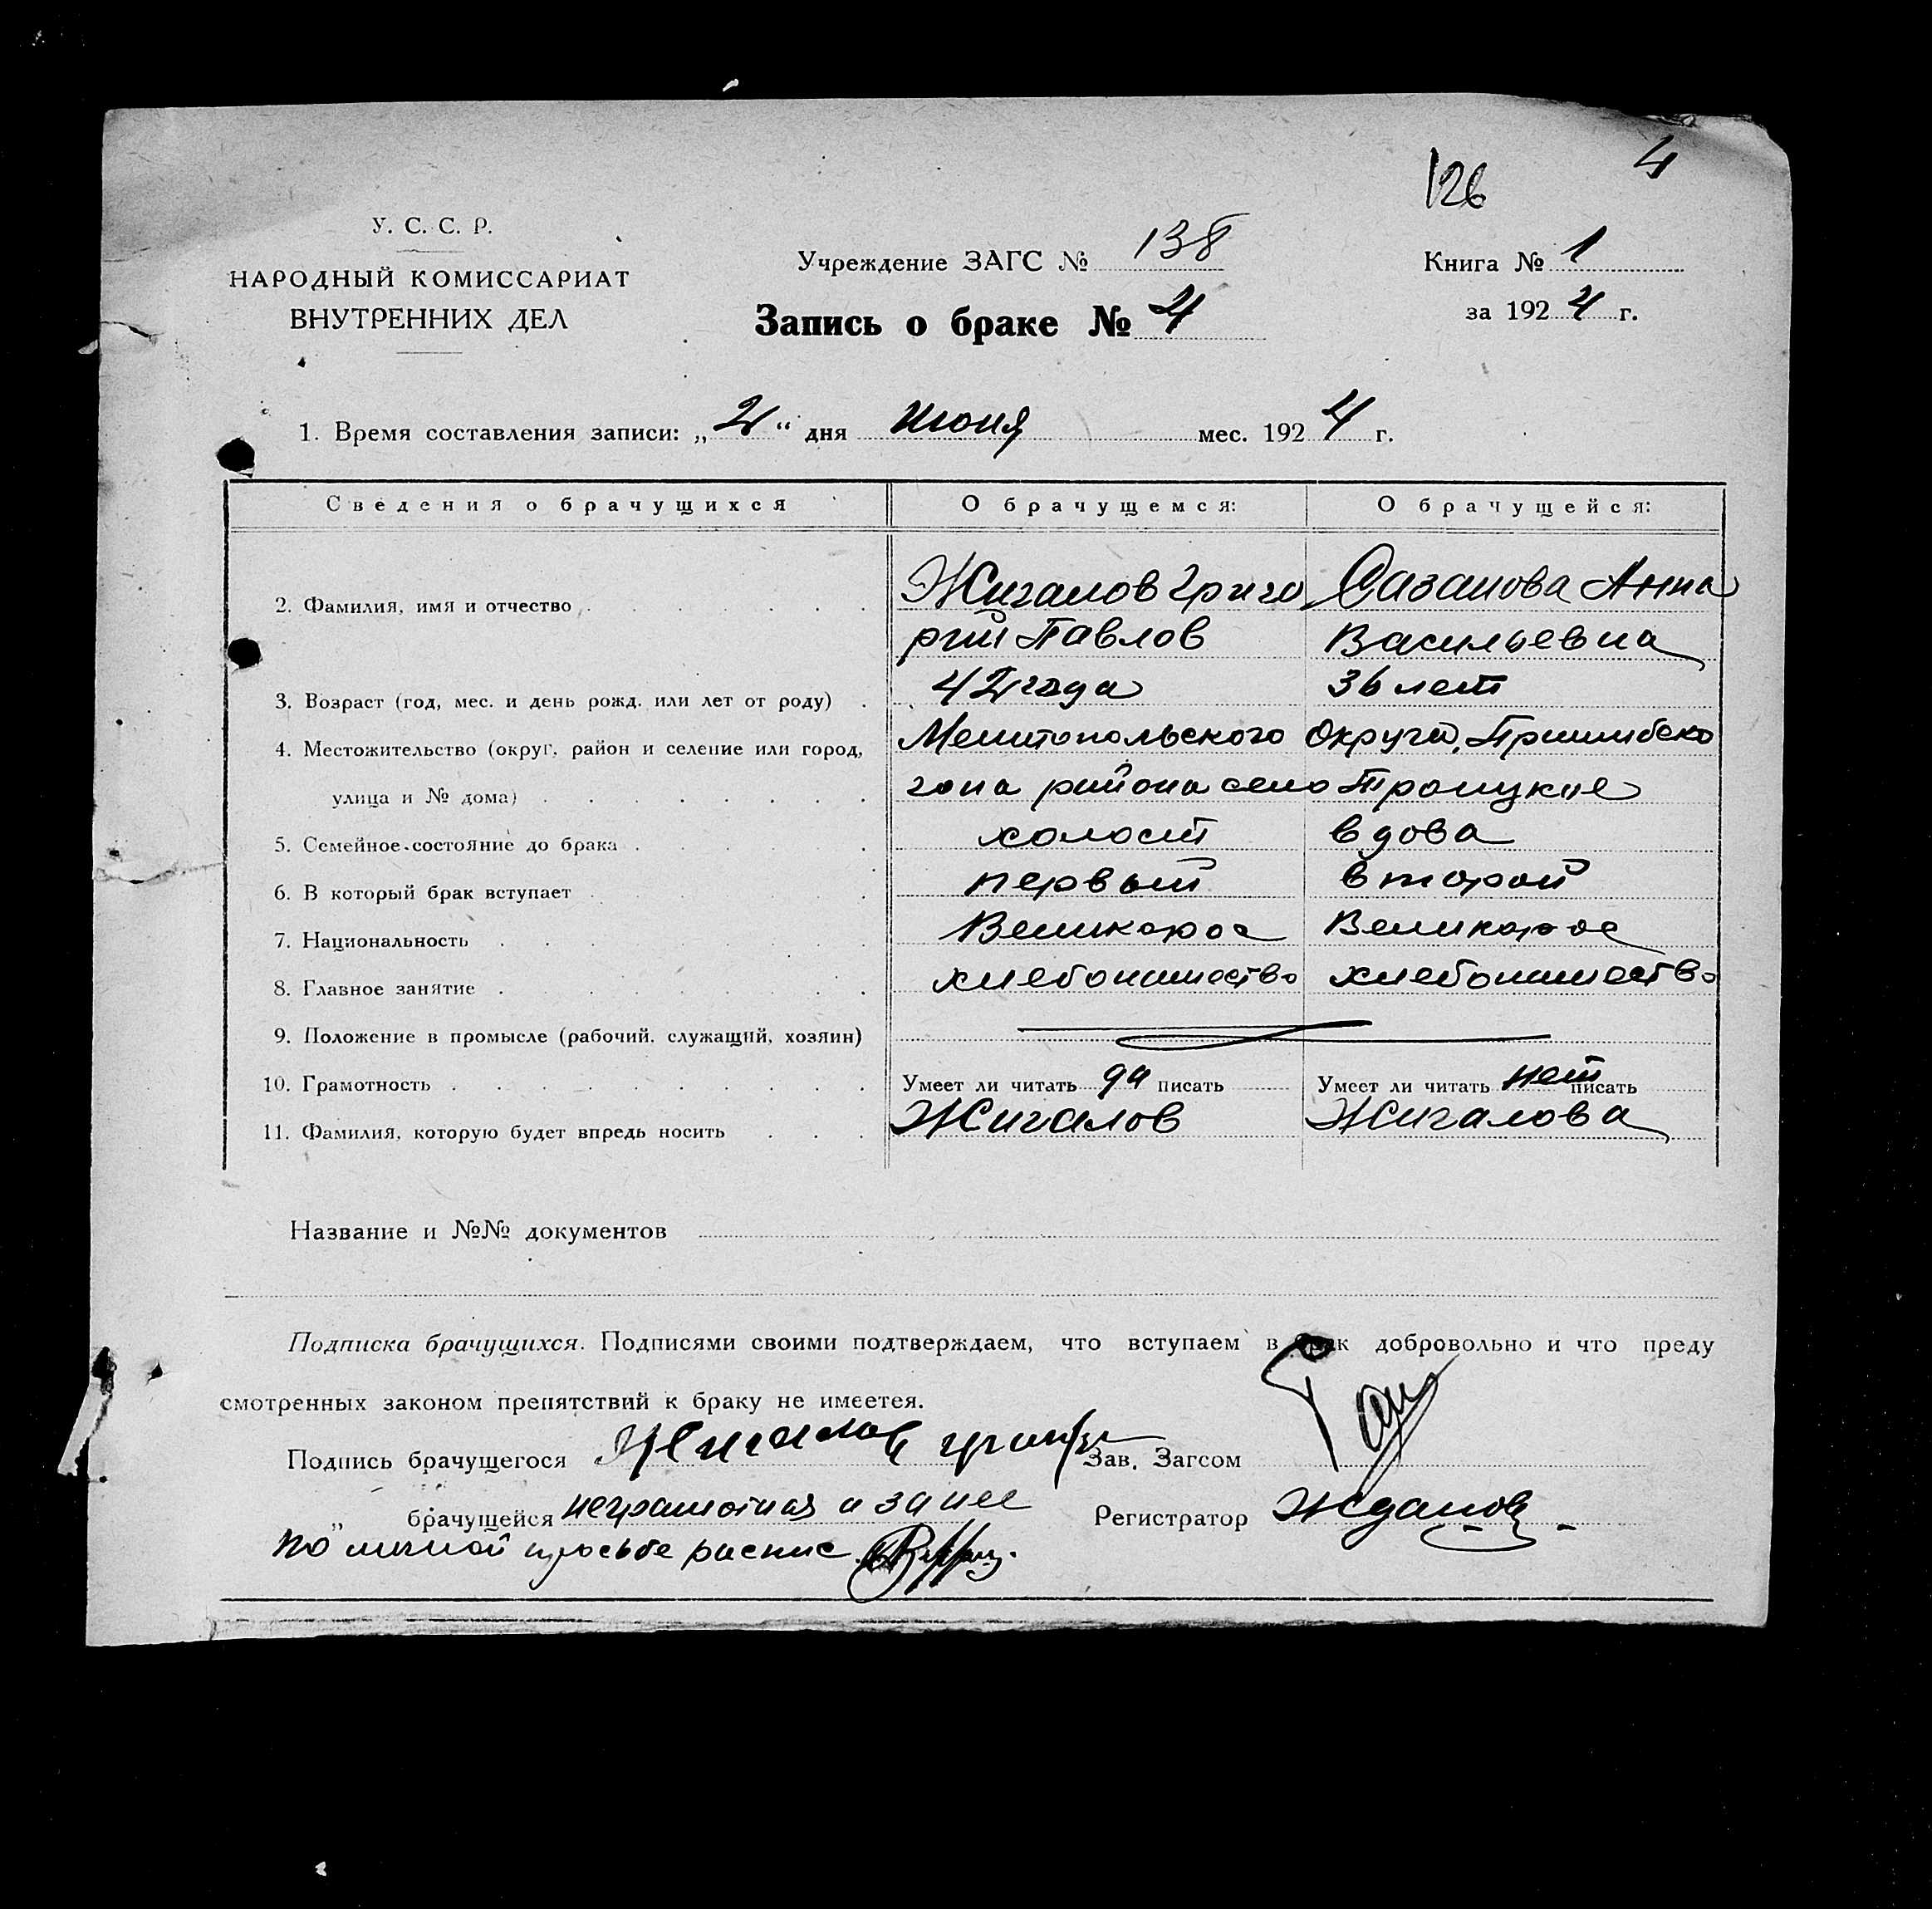 126
4
У. С. С. Р.
НАРОДНЫЙ КОМИССАРИАТ
ВНУТРЕННИХ ДЕЛ
Учреждение ЗАГС № 138
Запись о браке № 4
Книга № 1
за 1924 г.
1. Время составления записи: „2“ дня Июня мес. 1924 г.
Сведения о брачущихся О брачущемся: О брачущейся:
2. Фамилия, имя и отчество Жигалов Григо Сазанова Анна
ргий Павлов Васильевна
3. Возраст (год, мес. и день рожд. или лет от роду) 42 года 36 лет
4. Местожительство (округ, район и селение или город, Мелитопольского Округа, Пришибско
улица и № дома) гона района село Троицкое
5. Семейное состояние до брака холост вдова
6. В который брак вступает первый второй
7. Национальность Великорос Великорос
8. Главное занятие хлебопашество хлебопашество
9. Положение в промысле (рабочий, служащий, хозяин)
10. Грамотность Умеет ли читать да писать Умеет ли читать нет писать
11. Фамилия, которую будет впредь носить Жигалов Жигалова
Название и №№ документов
Подписка брачущихся. Подписями своими подтверждаем, что вступаем в брак добровольно и что преду
смотренных законом препятствий к браку не имеется.
Подпись брачущегося Жигалов Зав. Загсом
„ брачущейся неграмотная а за нее Регистратор Жданов
по личной просьбе распис.